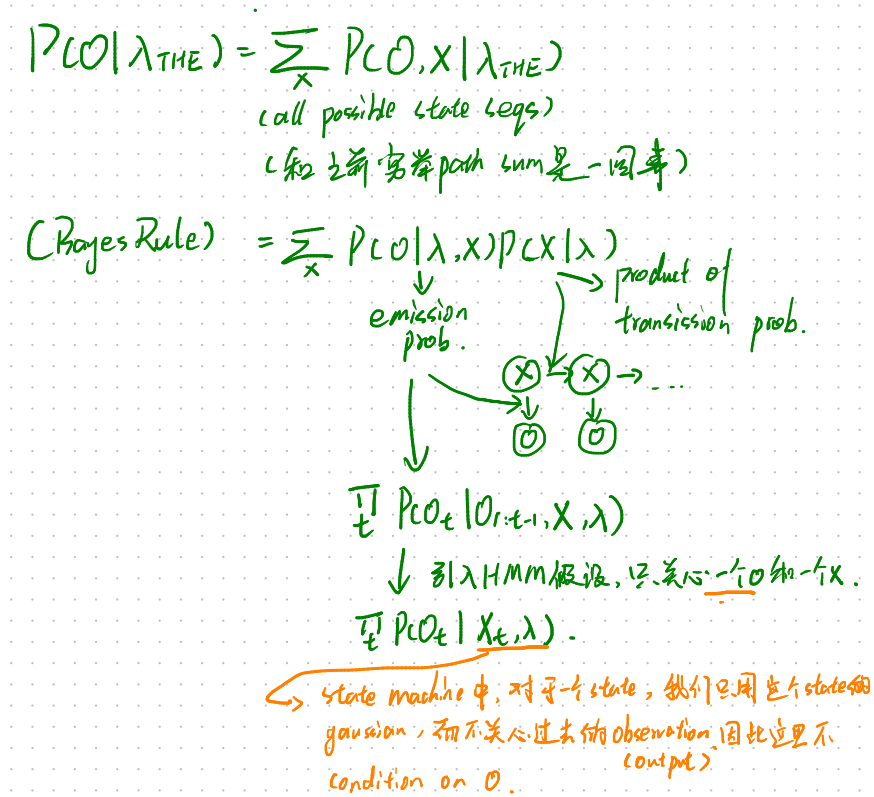 P(O|λTHE) = ∑x P(O,X|λTHE)
(all possible state seqs)
(和之前穷举path sum是一回事)
(Bayes Rule) = ∑x P(O|λ,X)P(X|λ)
product of
emission
transission prob.
prob.
X → X → ...
O O
∏t P(Ot|O1:t-1,X,λ)
引入HMM假设,只关心一个O和一个X.
∏t P(Ot|Xt,λ).
state machine中,对于一个state,我们只用这个state的
gaussian,而不关心过去的observation,因此这里不
(output)
condition on O.